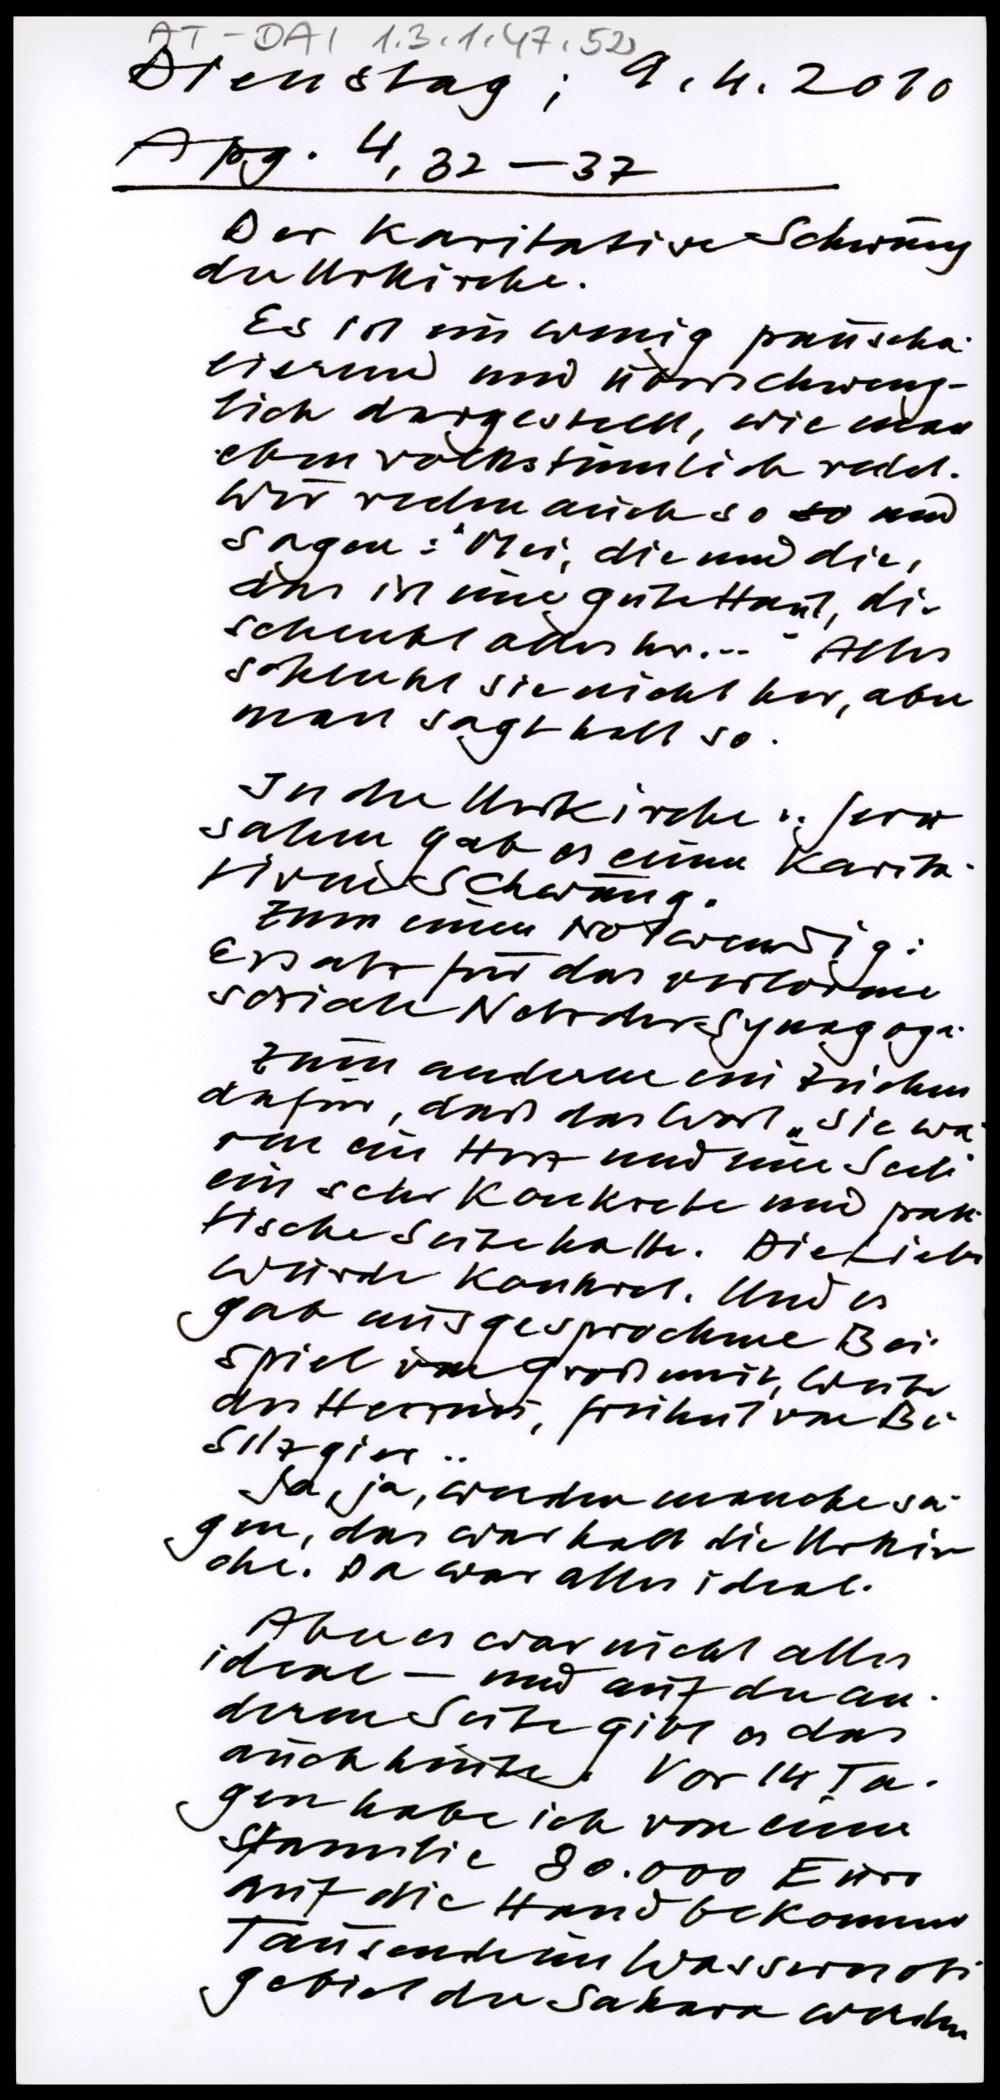 AT-DAI 1.3.1.47.52
Dienstag; 9.4.2010
Apg. 4,32-37
Der Karitative Schwung
der Urkirche.
Es ist ein wenig pauscha-
lierend und überschweng-
lich dargestellt, wie man
eben volkstümlich redet.
Wir reden auch so und
sagen: "Mei, die und die,
das ist eine gute Haut, die
schenkt alles her..." Alles
schenkt sie nicht her, aber
man sagt halt so.
In der Urkirche v. Jeru
salem gab es einen Karita-
tiven Schwung.
Zum einen Notwendig:
Ersatz für das verlorene
soziale Netz der Synagoge.
Zum anderen ein Zeichen
dafür, daß das Wort „Sie wa-
ren ein Herz und eine Seele
ein sehr Konkrete und prak-
tische Seite hatte. Die Liebe
wurde Konkret. Und es
gab ausgesprochene Bei-
spiel von Großmut, Weite
des Herzens, Freiheit von Be-
sitzgier..
Ja, ja, werden manche sa-
gen, das war halt die Urkir
che. Da war alles ideal.
Aber es war nicht alles
ideal - und auf der an-
deren Seite gibt es das
auch heute. Vor 14 Ta-
gen habe ich von einer
Familie 80.000 Euro
auf die Hand bekommen
Tausende im Wassernot-
gebiet der Sahara werden